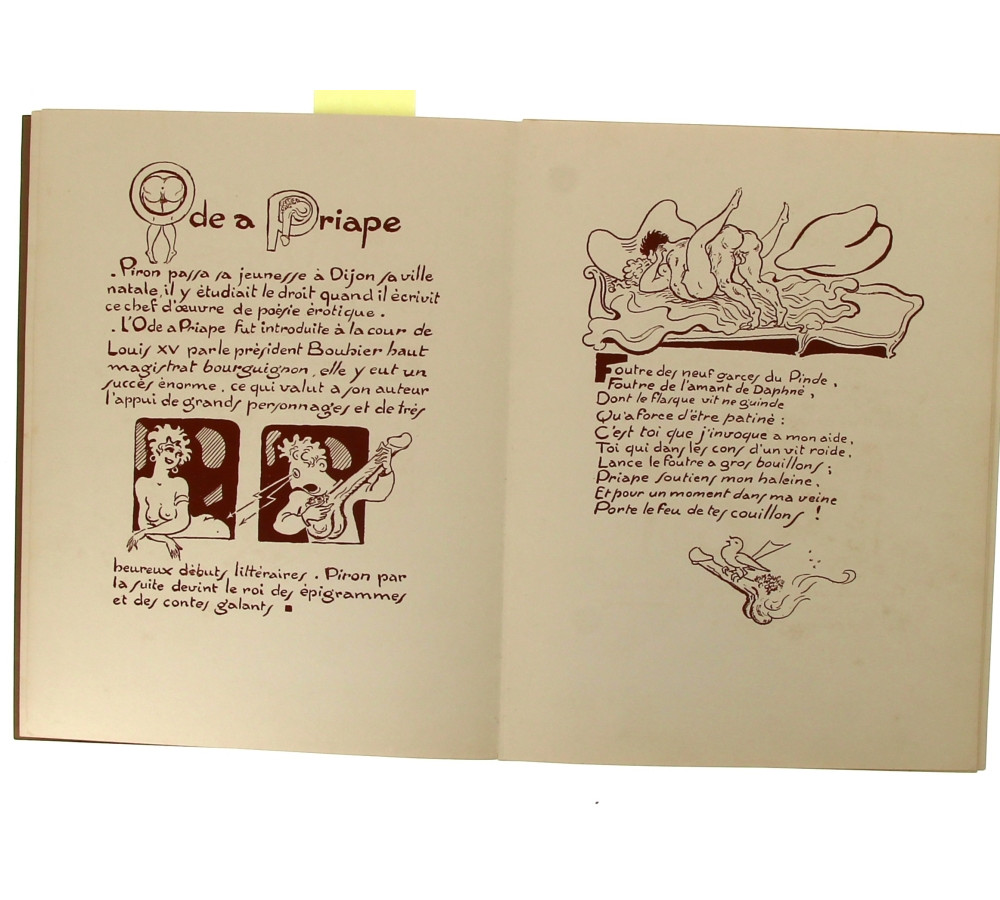 Ode a Priape
. Piron passa sa jeunesse à Dijon sa ville
natale, il y étudiait le droit quand il écrivit
ce chef d'œuvre de poésie érotique .
. L'Ode a Priape fut introduite à la cour de
Louis XV par le président Bouhier haut
magistrat bourguignon, elle y eut un
succès énorme, ce qui valut a son auteur
l'appui de grands personnages et de très
heureux débuts littéraires . Piron par
la suite devint le roi des épigrammes
et des contes galants
Foutre des neuf garces du Pinde,
Foutre de l'amant de Daphné,
Dont le flasque vit ne guinde
Qu'a force d'être patiné :
C'est toi que j'invoque a mon aide,
Toi qui dans les cons d'un vit roide,
Lance le foutre a gros bouillons ;
Priape soutiens mon haleine,
Et pour un moment dans ma veine
Porte le feu de tes couillons !